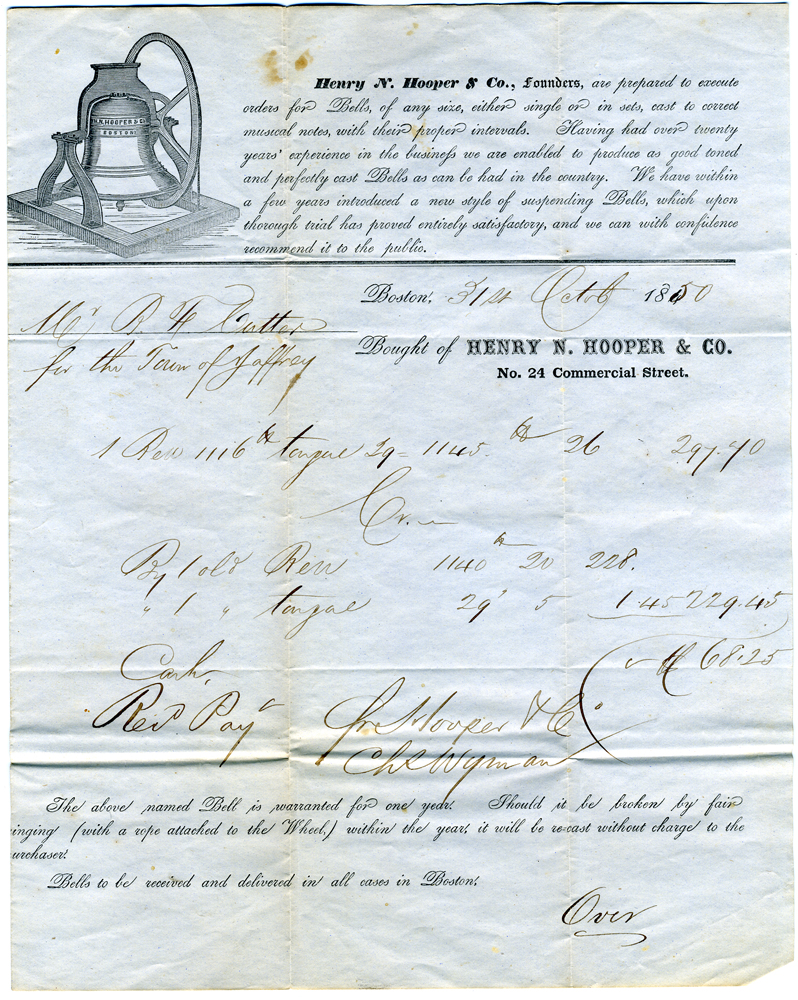 H.N. HOOPER & CO.
BOSTON
Henry N. Hooper & Co., Founders, are prepared to execute
orders for Bells, of any size, either single or in sets, cast to correct
musical notes, with their proper intervals. Having had over twenty
years' experience in the business we are enabled to produce as good toned
and perfectly cast Bells as can be had in the country. We have within
a few years introduced a new style of suspending Bells, which upon
thorough trial has proved entirely satisfactory, and we can with confidence
recommend it to the public.
Boston, 31st Octob 1850
Mr B. F Cutter
for the Town of Jaffrey
Bought of HENRY N. HOOPER & CO.
No. 24 Commercial Street.
1 Bell 1116 lb tongue 29 = 1145. lb 26 297.70
Cr.
By 1 old Bell 1140 lb 20 228.
" 1 " tongue 29 " 5 1.45 229.45
$ 68.25
Cash,
Recd. Payt
Hooper & Co
Chs Wyman
The above named Bell is warranted for one year. Should it be broken by fair
inging (with a rope attached to the Wheel,) within the year, it will be re-cast without charge to the
urchaser.
Bells to be received and delivered in all cases in Boston.
Over